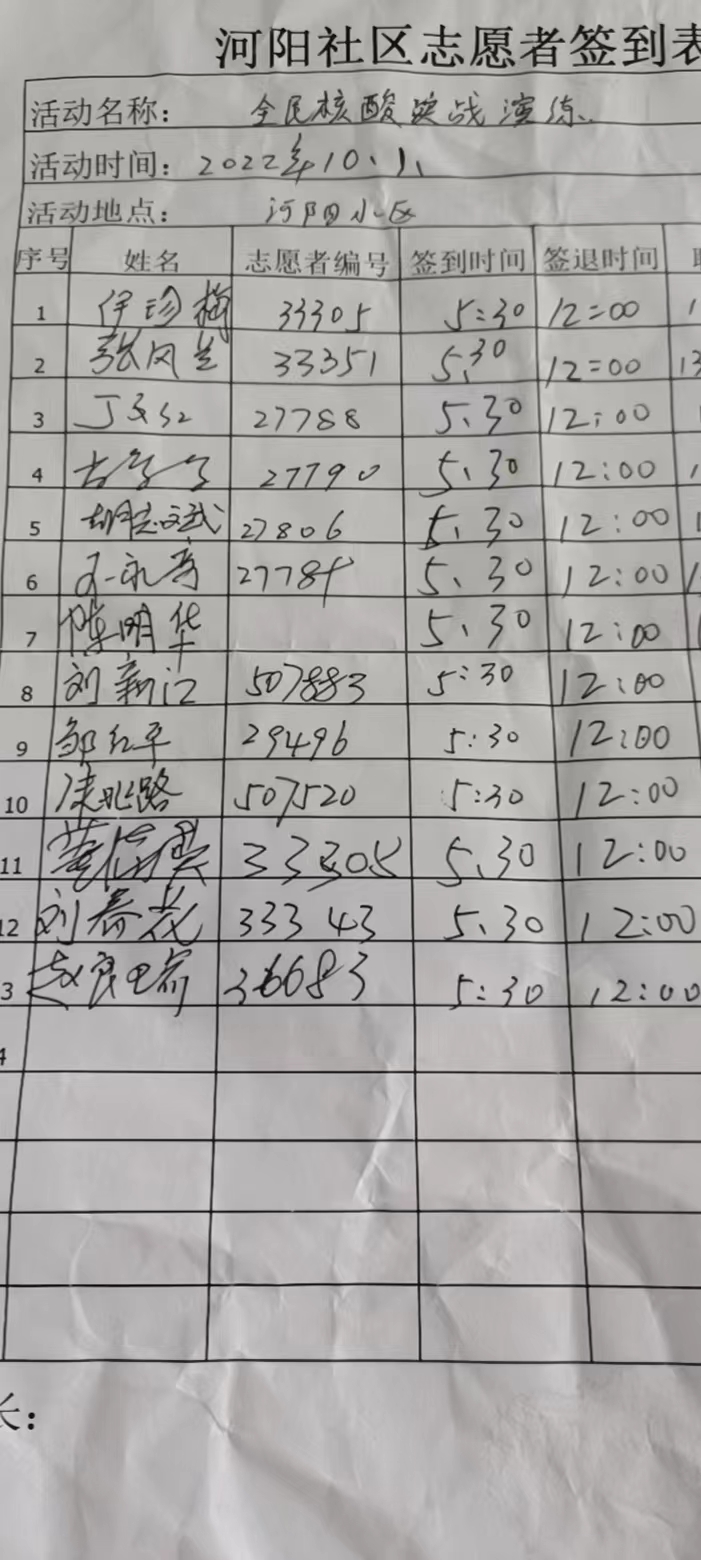 河阳社区志愿者签到表
活动名称： 全民核酸实战演练
活动时间：2022年10、1、
活动地点： 河阳小区
序号 姓名 志愿者编号 签到时间 签退时间
1 伊珍梅 33305 5:30 12=00
2 张风兰 33351 5、30 12=00
3 27788 5、30 12:00
4 27790 5、30 12:00
5 胡志斌 27806 5、30 12:00
6 永寿 5、30 12:00
7 陈明华 5、30 12:00
8 刘新江 507883 5:30 12:00
9 邹红平 29496 5:30 12:00
10 路 507520 5:30 12:00
11 33305 5、30 12:00
12 刘春花 333 43 5、30 12:00
3 赵 36683 5:30 12:00
4
长：